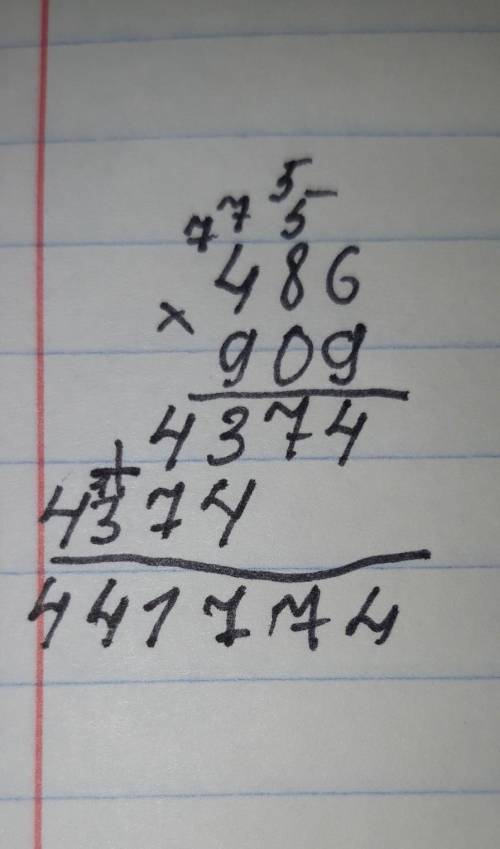 5
7 7 5
486
×
909
4374
1
4374
441774